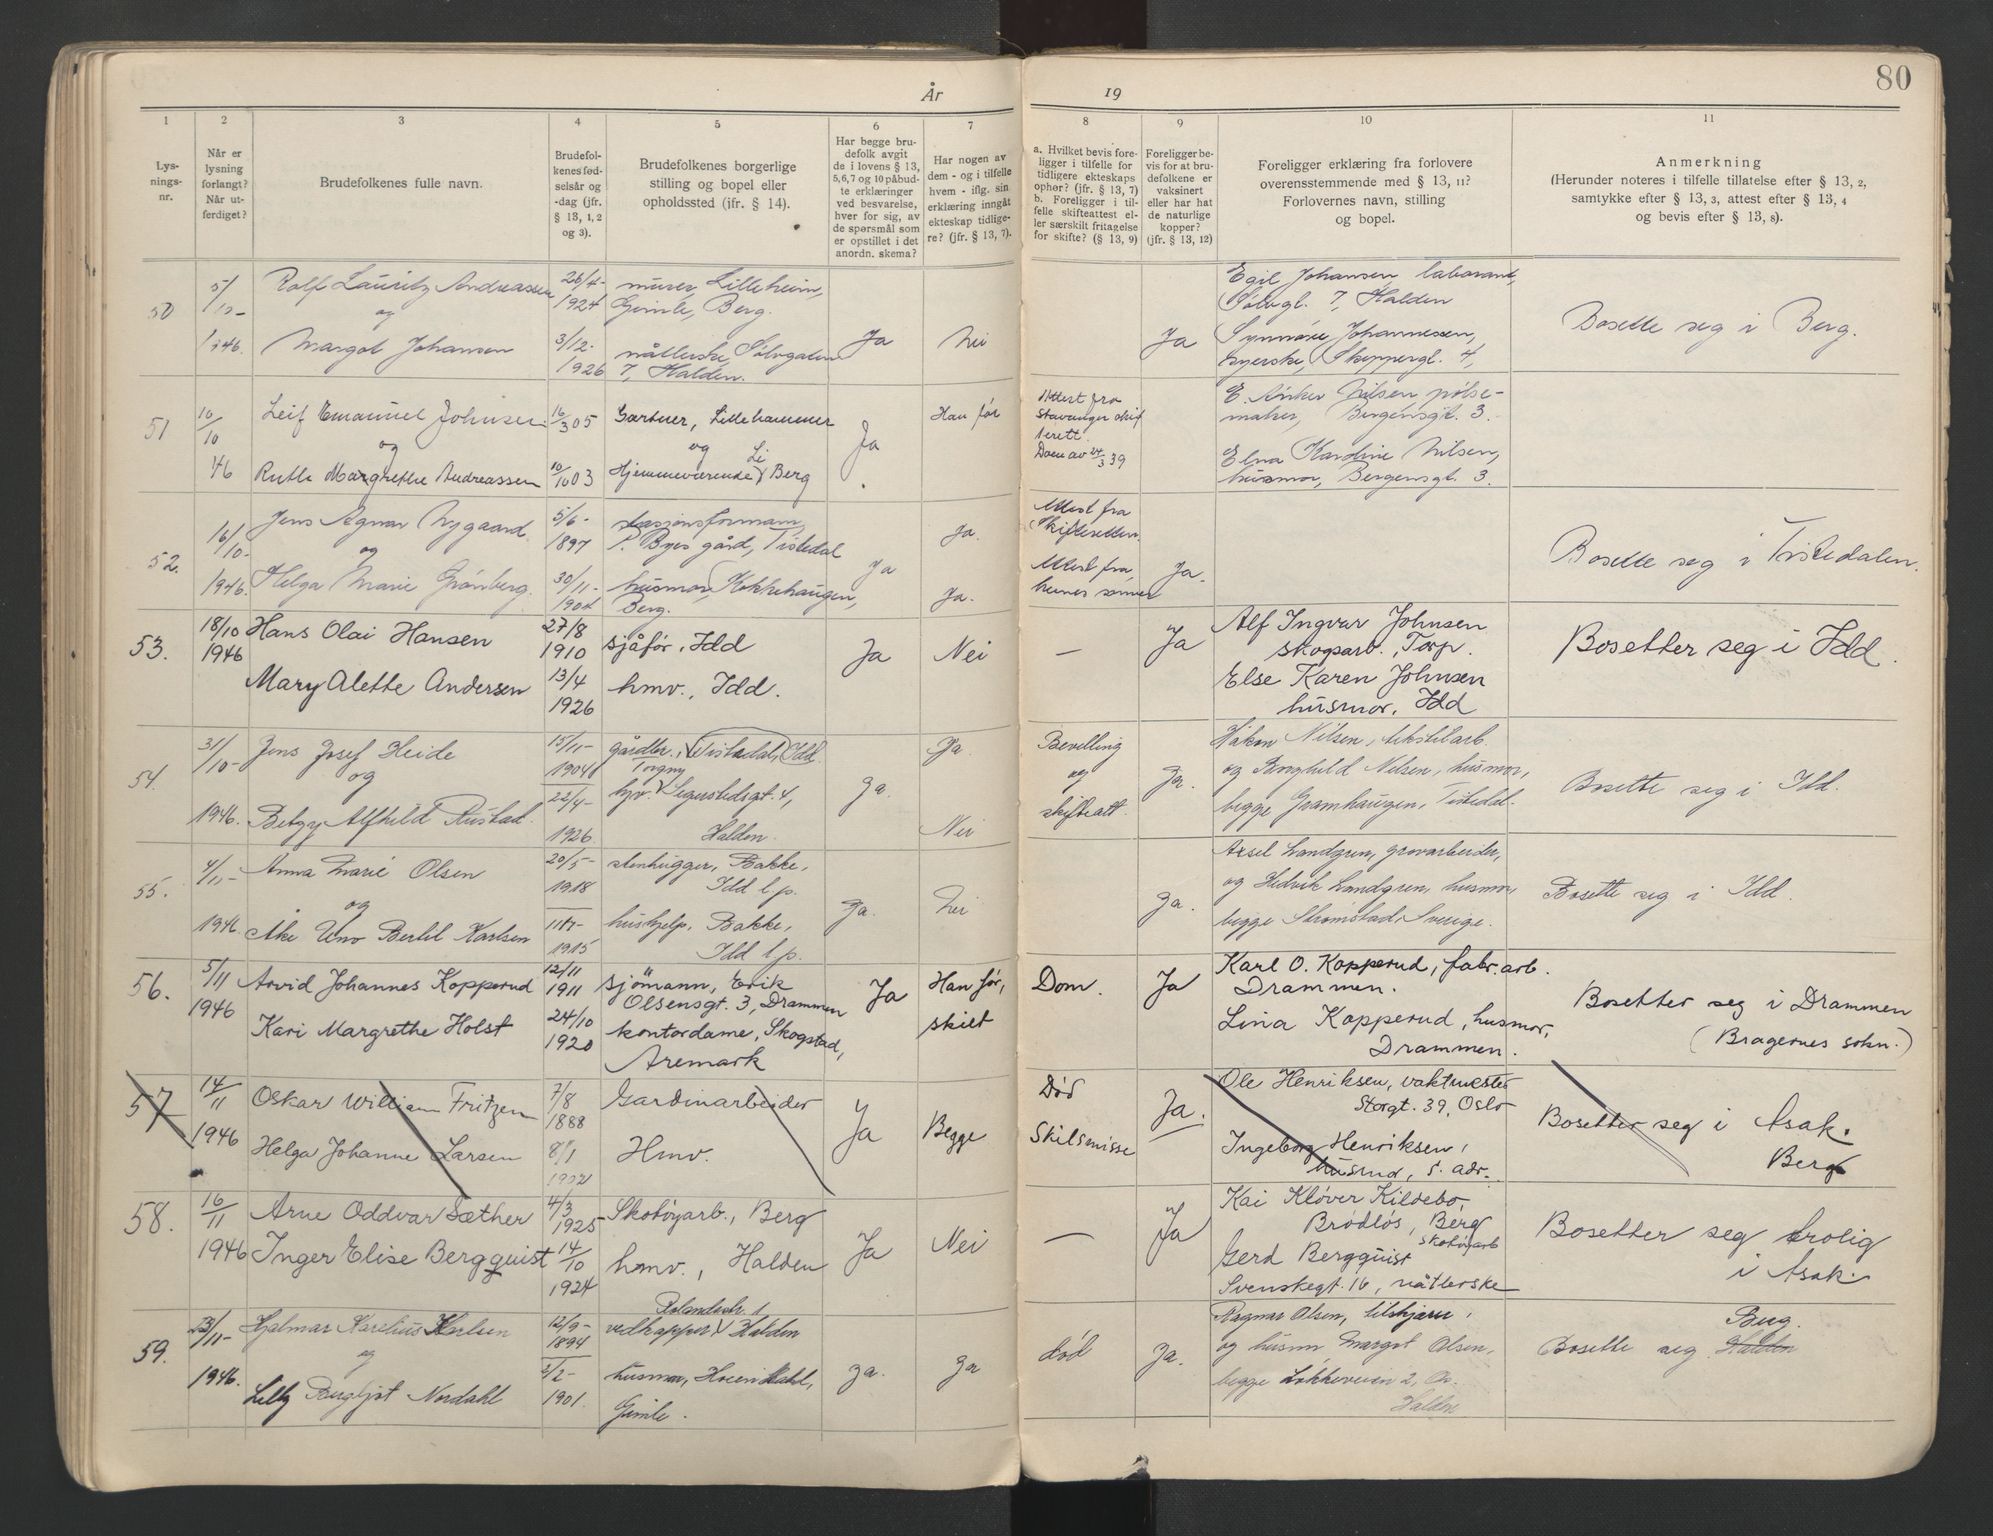 80
År
19
1
2
3
4
5
6
7
8
9
10
11
Lys-
nings-
nr.
Når er
lysning
forlangt?
Når ut-
ferdiget?
Brudefolkenes fulle navn.
Brudefol-
kenes fød-
selsår og
-dag (jfr.
§ 13, 1, 2
og 3).
Brudefolkenes borgerlige
stilling og bopel eller
opholdssted (jfr. § 14).
Har begge bru-
defolk avgit
de i lovens § 13,
5, 6, 7 og 10 påbud-
te erklæringer
ved besvarelse,
hver for sig, av
de spørsmål som
er opstillet i det
anordn. skema?
Har nogen av
dem - og i tilfelle
hvem - iflg. sin
erklæring inngåt
ekteskap tidlige-
re? (jfr. § 13, 7).
a. Hvilket bevis fore-
ligger i tilfelle for
tidligere ekteskaps
ophør? (jfr. § 13, 7)
b. Foreligger i til-
felle skifteattest el-
ler særskilt fritagelse
for skifte? (§ 13, 9)
Foreligger be-
vis for at bru-
defolkene er
vaksinert
eller har hat
de naturlige
kopper?
(jfr. § 13, 12)
Foreligger erklæring fra forlovere
overensstemmende med § 13, 11?
Forlovernes navn, stilling
og bopel.
Anmerkning
(Herunder noteres i tilfelle tillatelse efter § 13, 2,
samtykke efter § 13, 3, attest efter § 13, 4
og bevis efter § 13, 8).
50
5/
12-
1946.
Rolf Lauritz Andreassen
og
Margot Johansen
26/4-
1924
3/12-
1926
murer, Lilleheim,
Gimle, Berg.
nåtlerske, Sølvgaten
7, Halden.
Ja
Nei
Ja
Egil Johansen laborant,
Sølvgt. 7, Halden
Synnøve Johannessen,
syerske, Skippergt. 4,
Bosette seg i Berg.
51
10/
10
46
Leif Emanuel Johnsen
og
Ruth Margrethe Andreassen
16/3 05
10/10 03
Gartner, Lillehammer
og
Li
Hjemmeværende, Berg
Ja
Han før
Attest fra
Stavanger skif
terett.
Dom av 24/3 39
E. Anker Nilsen pølse-
maker, Bergensgt. 3.
Elna Karoline Nilsen,
husmor, Bergensgt. 3.
52.
16/
10-
1946.
Jens Agnar Nygaard
og
Helga Marie Grønberg.
5/6-
1897
30/11-
1904
stasjonsformann,
P. Byes gård, Tistedal
husmor, Kokkehaugen,
Berg.
Ja
Ja.
Ja.
Attest fra
Skifteretten.
Attest fra
hennes sønner
Ja.
Bosette seg i Tistedalen.
53.
18/10
1946
Hans Olai Hansen
Mary Alette Andersen
27/8
1910
13/4
1926
sjåfør, Idd
hmv., Idd.
Ja
Nei
—
Ja
Alf Ingvar Johnsen
skogsarb., Torp.
Else Karen Johnsen
husmor, Idd
Bosetter seg i Idd.
54.
31/
10-
1946.
Jens Josef Heide
og
Betzy Alfhild Austad.
15/11-
1904
22/4-
1926.
gårdbr., Tistedal, Idd.
Torgny
hjv. Segerstedsgt. 4,
Halden.
Ja.
Ja.
Nei
Bevilling
og
skifteatt.
Ja.
Håkon Nilsen, tekstilarb.
og Borghild Nilsen, husmor,
begge Gramhaugen, Tistedal.
Bosette seg i Idd.
55.
4/11-
1946.
Anna Marie Olsen
og
Åke Uno Bertil Karlsen
20/5-
1918
11/7-
1915
stenhugger, Bakke,
Idd l.p.
hushjelp, Bakke,
Idd l.p.
Ja.
Nei
Ja.
Axsel Landgren, grovarbeider,
og Hedvik Landgren, husmor,
begge Strømstad, Sverige.
Bosette seg i Idd.
56.
5/11
1946
Arvid Johannes Kopperud
Kari Margrethe Holst
12/11
1911
24/10
1920
sjömann, Erik
Olsensgt. 3, Drammen
kontordame, Skogstad,
Aremark
Ja
Han før,
skilt
Dom.
Ja
Karl O. Kopperud, fabr. arb.
Drammen.
Lina Kopperud, husmor,
Drammen.
Bosetter seg i Drammen
(Bragernes sokn.)
57
14/
11
1946
Oskar William Fritzen
Helga Johanne Larsen
7/8
1888
8/1
1902
Gardinarbeider
Hmv.
Ja
Begge
Død
Skilsmisse
Ja.
Ole Henriksen, vaktmester
Storgt. 39, Oslo
Ingeborg Henriksen,
husmo, s. adr.
Bosetter seg i Asak.
Berg
58.
16/
11
1946
Arne Oddvar Sæther
Inger Elise Bergquist
4/3
1925
14/
10
1924
Skotøyarb., Berg
hmv., Halden
Ja
Nei
—
Ja
Kai Kløver Kildebo,
Brødløs, Berg
skotøyarb
Gerd Bergquist
Svenskegt. 16, nåtlerske
Bosetter seg trolig
i Asak.
59.
23/
11-
1946.
Hjalmar Karelius Karlsen
og
Lilly Bergljot Nordahl
12/9-
1894
2/2-
1901.
Rolandsch. 1
vedkapper, Halden
husmor, Høiendahl,
Gimle.
Ja.
Ja
død
Ja.
Ragnar Olsen, tilskjærer,
og husm Margot Olsen,
begge Løkkeveien 2,
Halden
Berg.
Bosette seg Halden